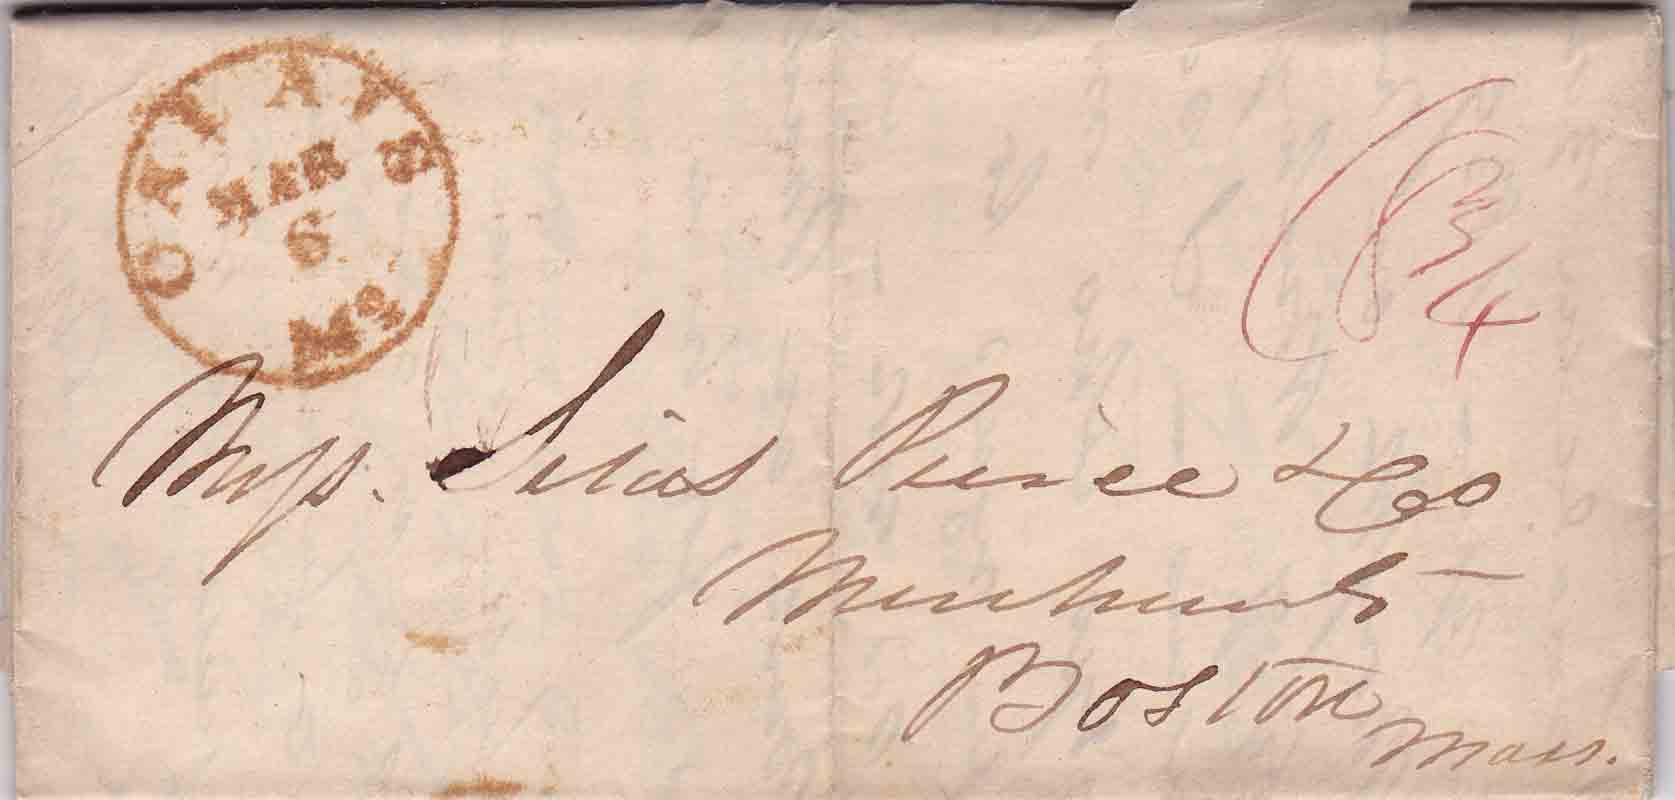 CALAIS
MAR
6
Me
18 3/4
Mess. Silas Pierce & Co
Merchants
Boston
Mass.